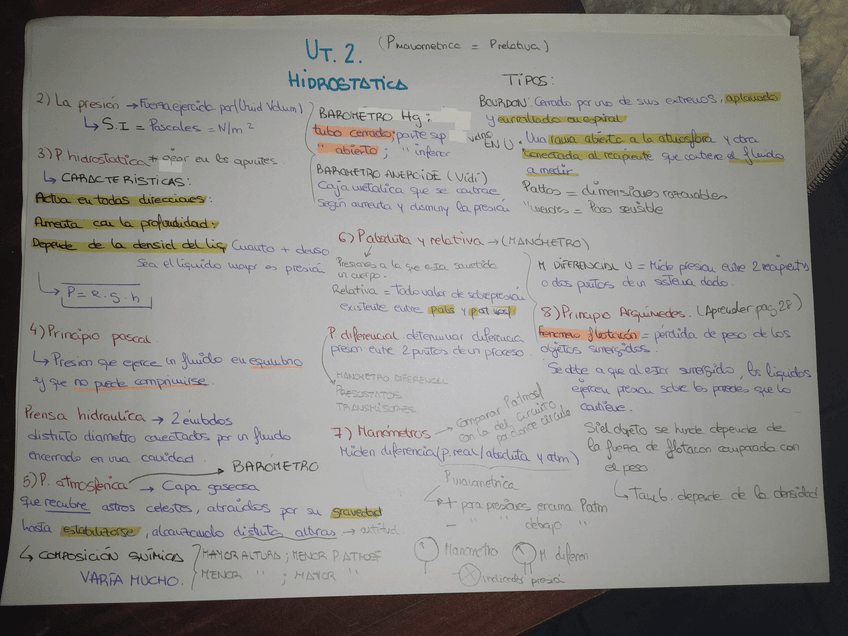 (Pmanometrica = Prelativa)
UT. 2.
HIDROSTATICA
2) La presión → Fuerza ejercida por (Unid Volum)
↳ S.I = Pascales = N/m²
3) P. hidrostatica + en los apuntes
↳ CARACTERÍSTICAS:
Actua en todas direcciones.
Aumenta con la profundidad.
Depende de la densid del liq Cuanto + denso
sea el líquido mayor es presión
P = e. g. h
4) Principio pascal
↳ Presion que ejerce un fluido en equilibrio
y que no puede comprimirse.
Prensa hidraulica → 2 émbolos
distinto diametro conectados por un fluido
encerrado en una cavidad.
BARÓMETRO
5) P. atmosferica → Capa gaseosa
que recubre astros celestes, atraidos por su gravedad
hasta estabilizarse, alcanzando distinta alturas → actitud
↳ COMPOSICIÓN QUÍMICA
VARÍA MUCHO.
MAYOR ALTURA; MENOR P ATMOSF
MENOR " ; MAYOR "
BARÓMETRO Hg:
tubo cerrado; parte sup
" abierto; " inferior
BAROMETRO ANEROIDE (Vidi)
Caja metalica que se contrae
según aumenta y disminuy la presión
6) P absoluta y relativa → (MANÓMETRO)
Presiones a la que esta sometido
un cuerpo.
Relativa = Todo valor de sobrepresión
existente entre pabs y patmosf
P diferencial determinar diferencia
presion entre 2 puntos de un proceso.
MANOMETRO DIFERENCIAL
PRESOSTATOS
TRANSMISORES
7) Manómetros → comparar Patmosf
con la del circuito
por donde circula
Miden diferencia (p.real/absoluta y atm)
P manometrica
+ para presiones encima Patm
- " " debajo "
Manometro M diferen
indicador presión
TIPOS:
BOURDON: Cerrado por uno de sus extremos, aplanado
y enrollado en espiral
EN U: Una rama abierta a la atmosfera y otra
conectada al recipiente que contiene el fluido
a medir
Pattos = dimensiones razonables
" = Poco sensible
M DIFERENCIAL U = Mide presion entre 2 recipients
o dos puntos de un sistema dado.
8) Principio Arquimedes. (Aprender pag 28)
Fenomeno flotación = pérdida de peso de los
objetos sumergidos.
Se debe a que al estar sumergido, los liquidos
ejercen presion sobre las paredes que lo
contiene.
Si el objeto se hunde depende de
la fuerza de flotacion comparado con
el peso
↳ Tamb. depende de la densidad